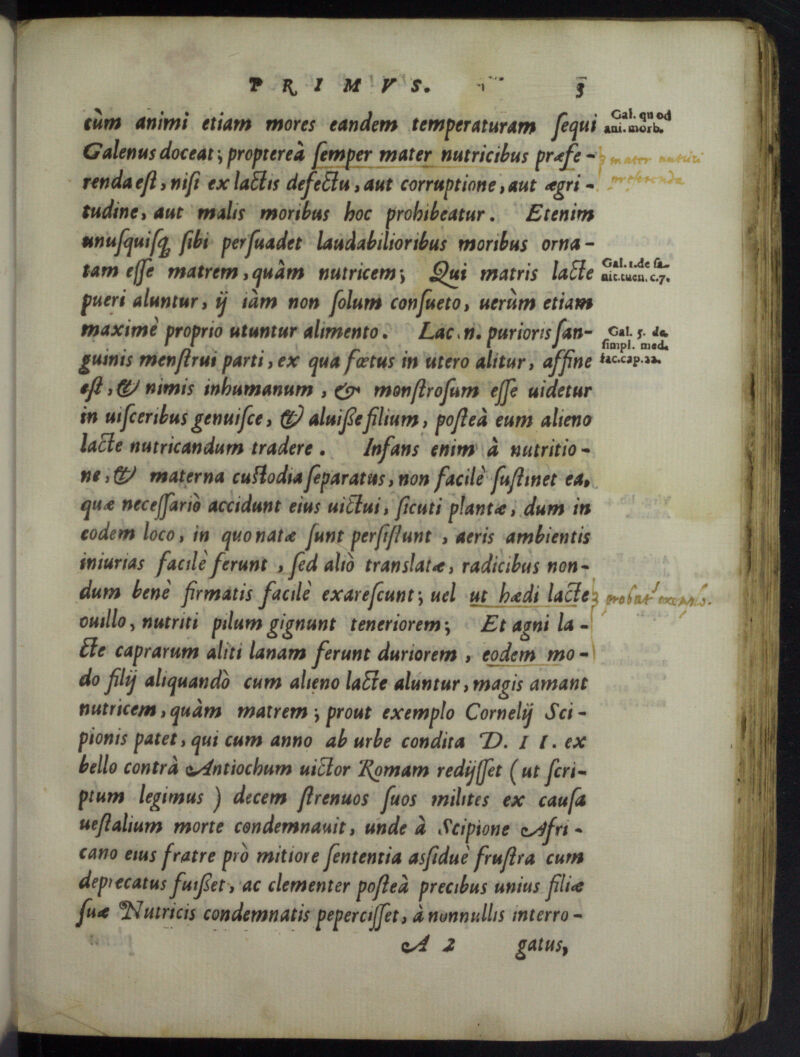 PRIMVS. 3
cùm animi etiam mores eandem temperaturam ſequi
Galenus doceat; propterea ſemper mater nutricibus præfe-
renda eſt, niſi ex lactis defectu, aut corruptione, aut ægri-
tudine, aut malis moribus hoc prohibeatur. Etenim
unuſquiſq; ſibi perſuadet laudabilioribus moribus orna-
tam eſſe matrem, quàm nutricem; Qui matris lacte
pueri aluntur, ij iàm non ſolum conſueto, uerùm etiam
maximè proprio utuntur alimento. Lac.n. purioris ſan-
guinis menſtrui parti, ex qua fœtus in utero alitur, affine
eſt, & nimis inhumanum, & monſtroſum eſſe uidetur
in uiſceribus genuiſce, & aluiße filium, poſteà eum alieno
lacte nutricandum tradere. Infans enim à nutritio-
ne, & materna cuſtodia ſeparatus, non facilè ſuſtinet ea,
quæ neceſſariò accidunt eius uictui, ſicuti plantæ, dum in
eodem loco, in quo natæ ſunt perſiſtunt, aeris ambientis
iniurias facilè ferunt, ſed aliò translatæ, radicibus non-
dum benè firmatis facilè exareſcunt; uel ut hædi lacte
ouillo, nutriti pilum gignunt teneriorem; Et agni la-
cte caprarum aliti lanam ferunt duriorem, eodem mo-
do filij aliquandò cum alieno lacte aluntur, magis amant
nutricem, quàm matrem; prout exemplo Cornelij Sci-
pionis patet, qui cum anno ab urbe condita D. I I. ex
bello contrà Antiochum uictor Romam redijſſet (ut ſcri-
ptum legimus ) decem ſtrenuos ſuos milites ex cauſa
ueſtalium morte condemnauit, unde à Scipione Afri-
cano eius fratre prò mitiore ſententia asſiduè fruſtra cum
deprecatus fuißet, ac clementer poſteà precibus unius filiæ
ſuæ Nutricis condemnatis peperciſſet, à nonnullis interro-
A 2 gatus,
Gal. quod
ani. morb.
mater nutrici
preferenda
Gal. 1. de ſa-
nit. tuen. c. 7.
Gal. 5. de
ſimpl. med.
fac. cap. 22.
probat exemplis.